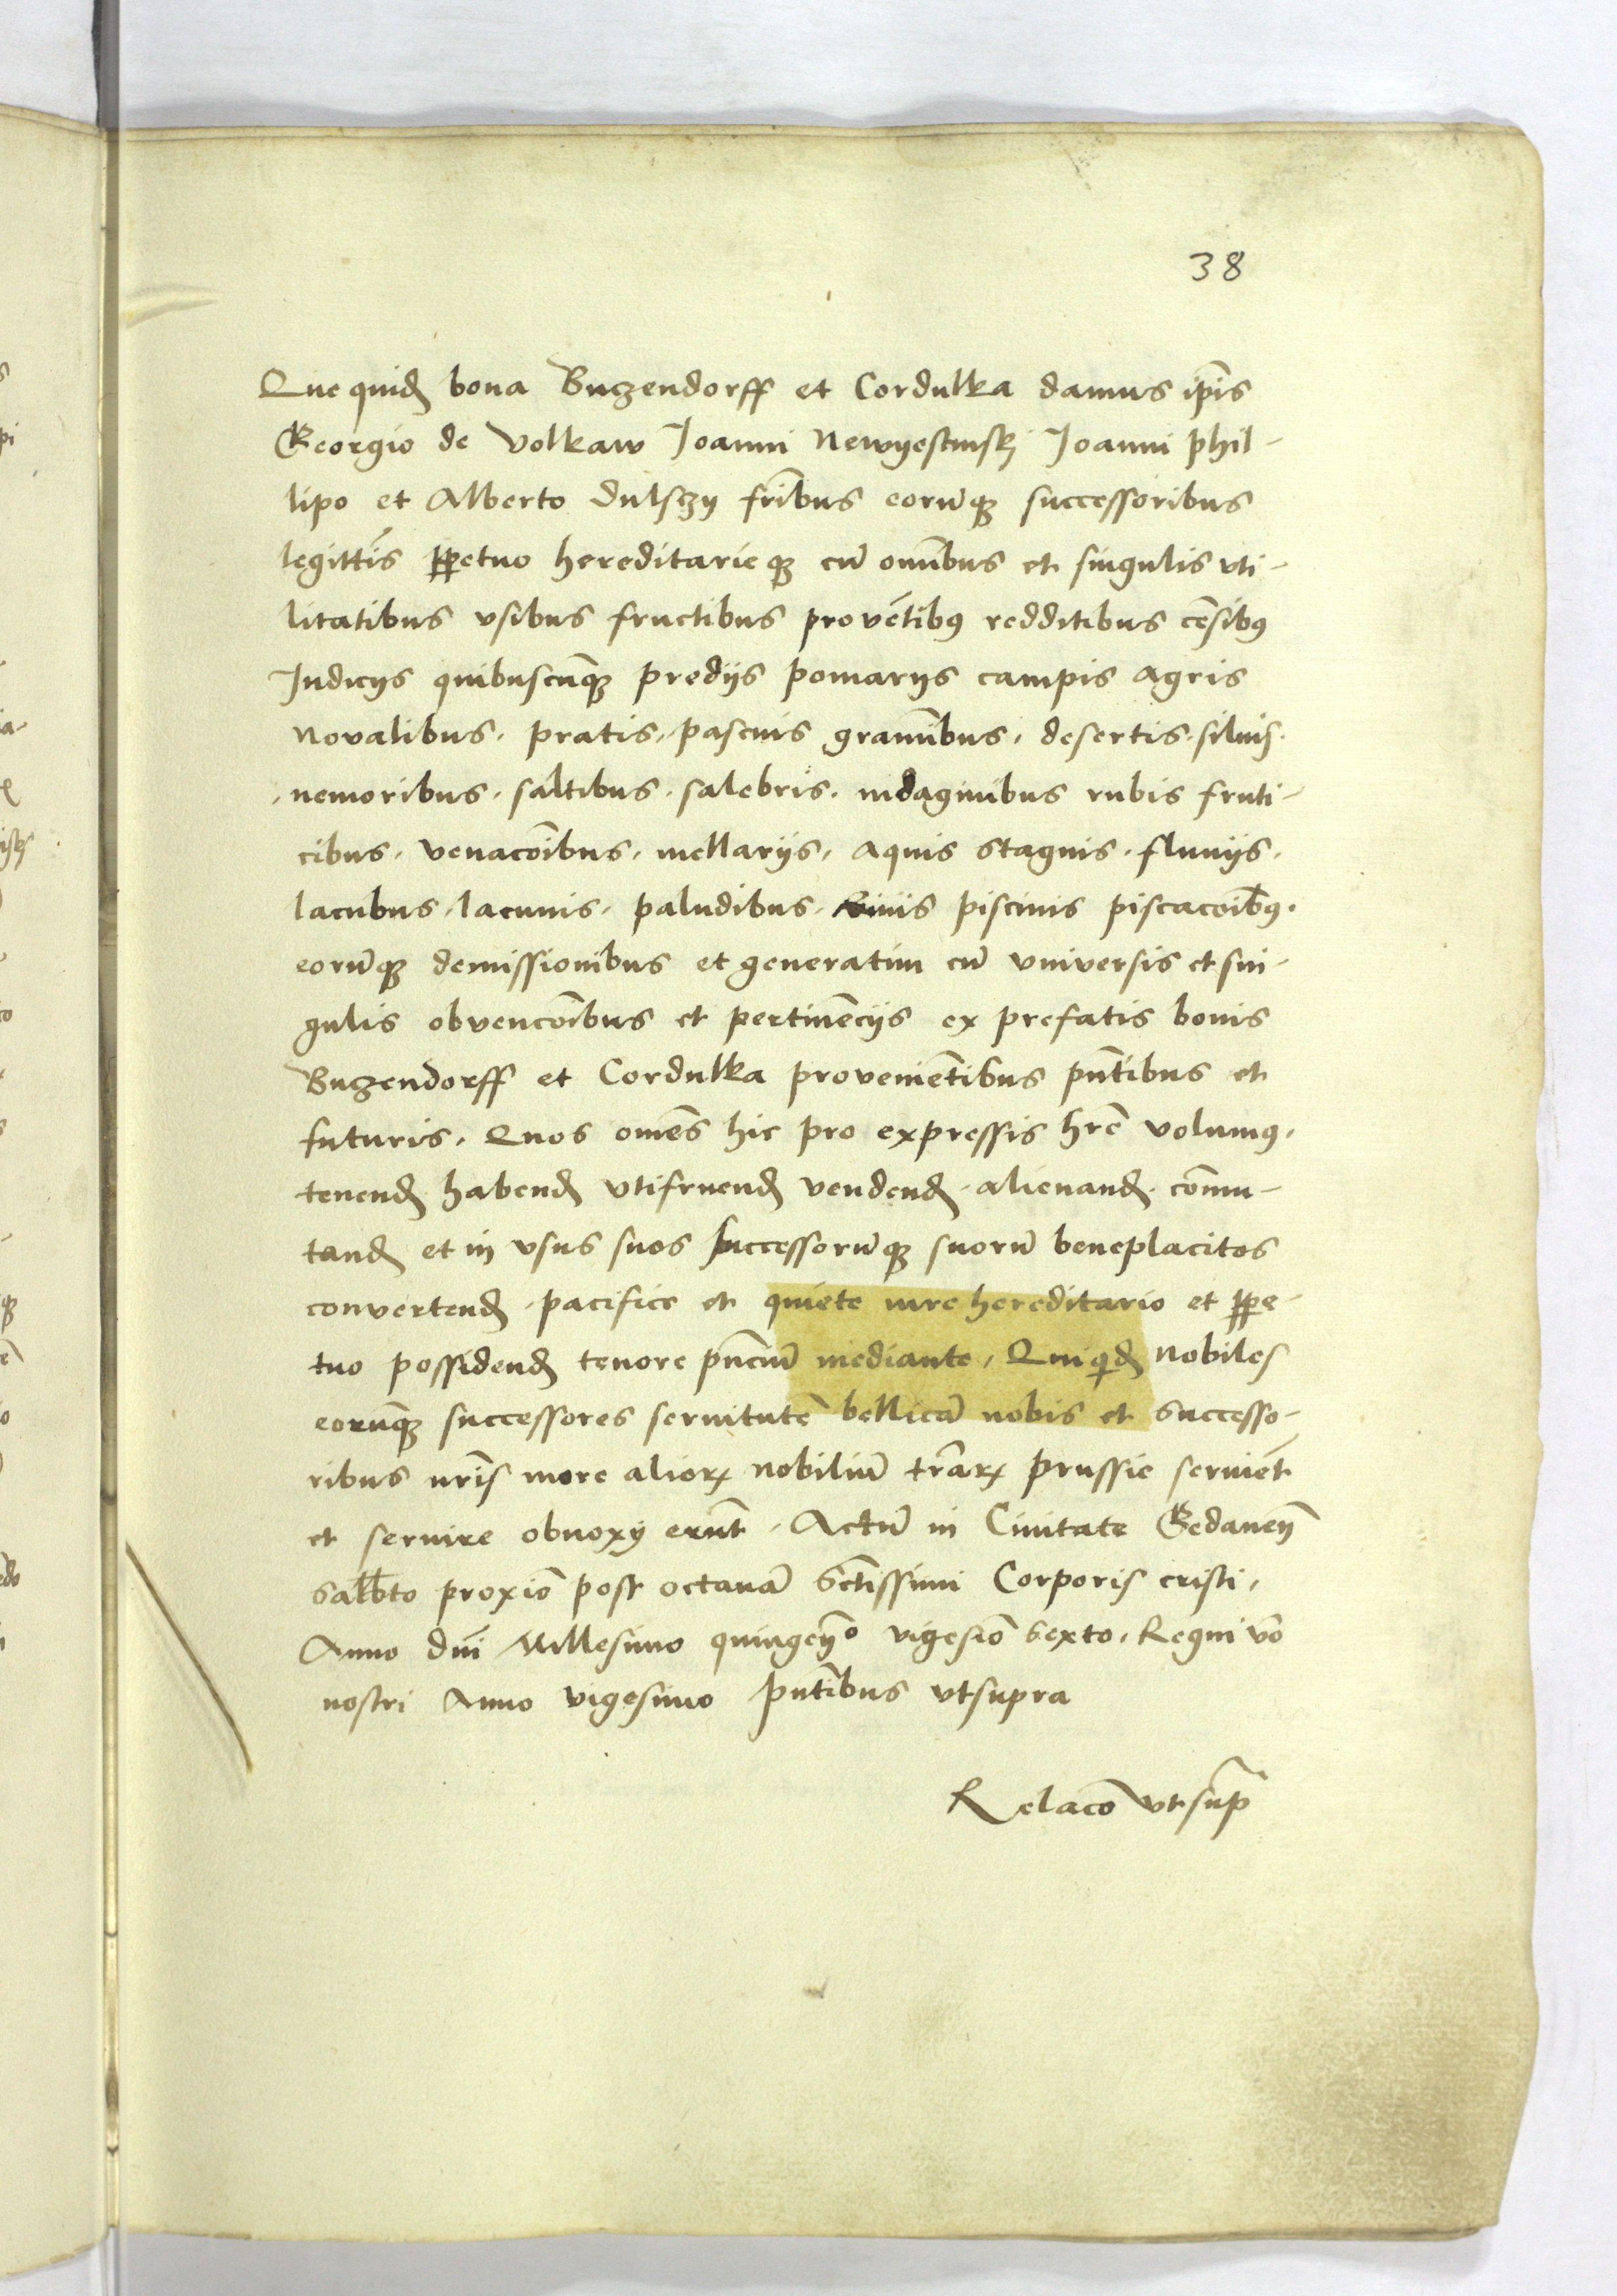 38
Que quid bona Buczendorff et Cordulka damus ip̄is
Georgio de Volkaw Joanni Newyescinsky Joanni phil-
lipo et Alberto dulsczy fr̄ibus eorumq₃ successoribus
legitti͂s ꝑpetuo hereditarieq₃ cū om̄ibus et singulis vti-
litatibus vsibus fructibus provētibꝰ redditibus cēsibꝰ
Judicys quibuscūq₃ predijs pomarijs campis agris
novalibus, pratis, pascuis gram̄ibus, desertis, siluis,
nemoribus, saltibus, salebris, indaginibus rubis fruti-
cibus, venacōibus, mellarijs, aquis stagnis, fluuijs,
lacubus, lacunis, paludibus, Riuis piscinis piscacōibꝰ.
eorūq₃ demissionibus et generatim cū vniversis et sin-
gulis obvencōibus et pertinēcijs ex prefatis bonis
Buczendorff et Cordulka proveniētibus pn̄tibus et
futuris, Quos om̄es hic pro expressis hr̄e volumꝰ,
tenend habend vtifruend vendend, alienand, com̄u-
tand et in vsus suos successorūq₃ suorū beneplacitos
convertend, pacifice et quiete iure hereditario et ꝑpe-
tuo possidend tenore pn̄ciū mediante, Quiquid Nobiles
eorūq₃ successores servitutē bellicā nobis et successo-
ribus nr̄is more alioꝝ nobiliū tr̄aꝝ prussie serviēt
et servire obnoxy erūt, Actū in Civitate Gedaneñ
Sabbto proxiō post octavā Sctissimi Corporis cristi,
Anno dn̄i Millesimo quingenº vigesiō sexto, Regni vō
nostri Anno vigesimo pn̄tibus vtsupra
Relacō vt sup̄